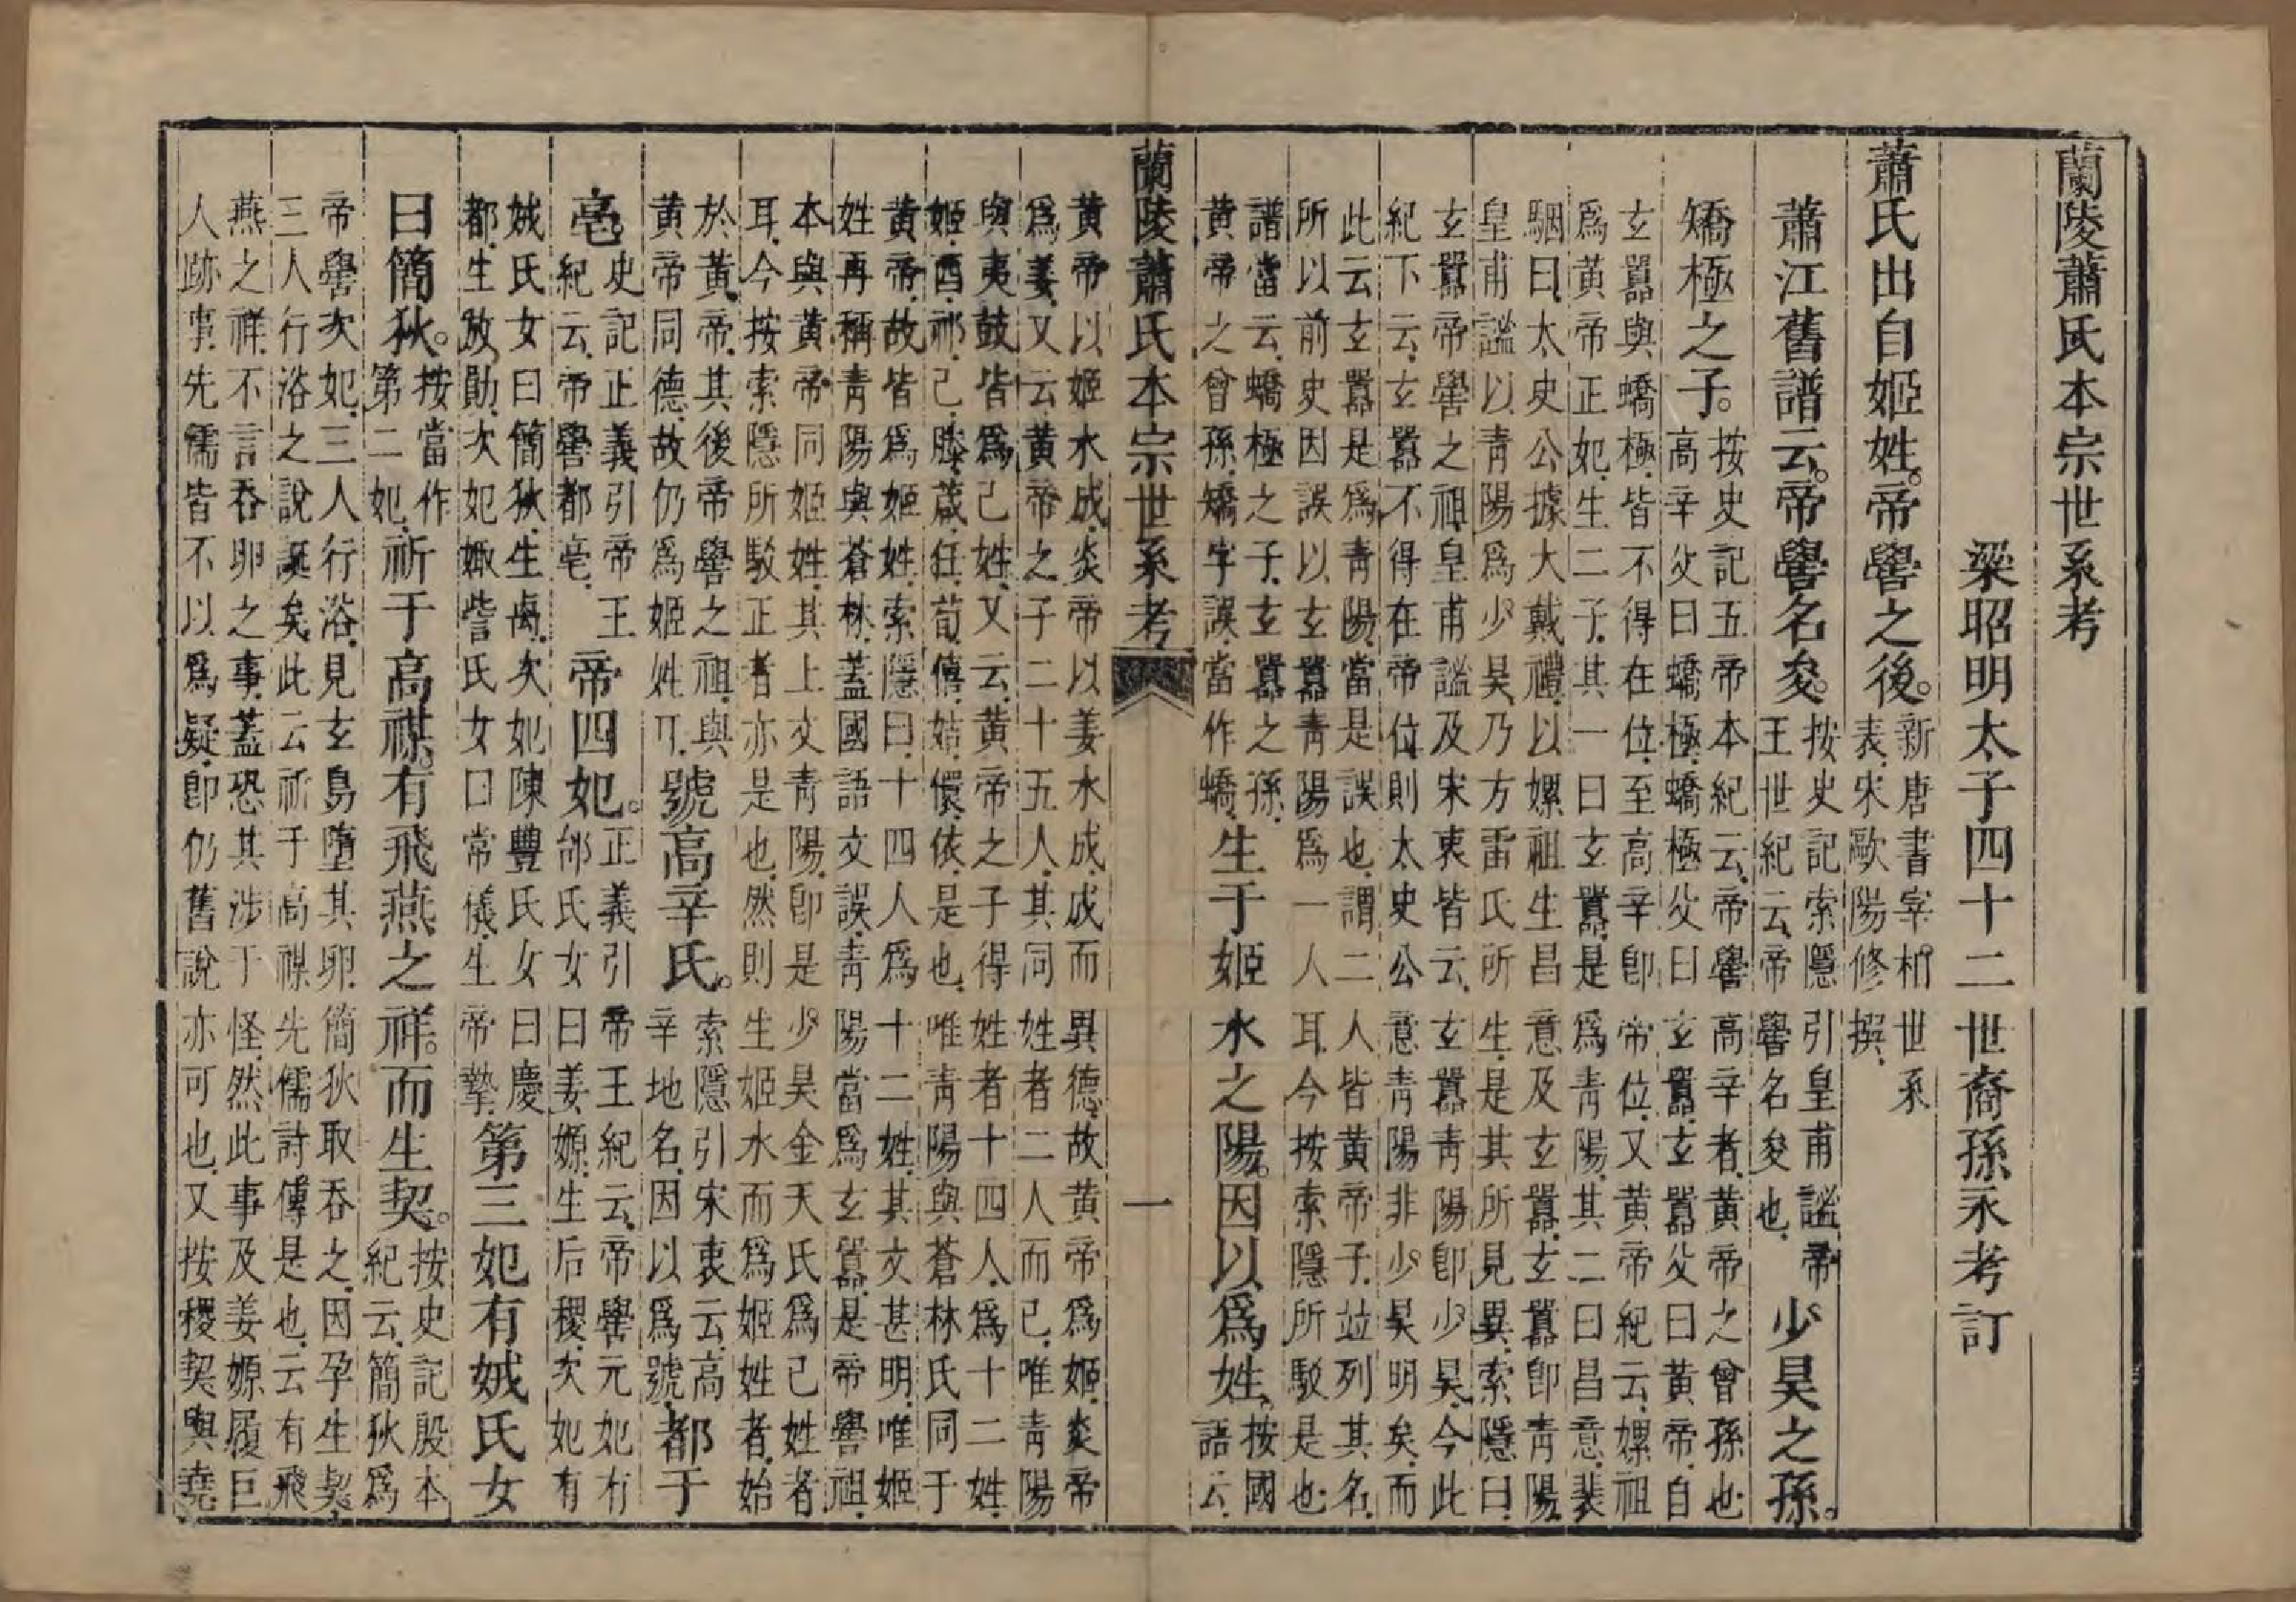 蘭陵蕭氏本宗世系考
梁昭明太子四十二世裔孫永考訂
蕭氏出自姬姓。帝嚳之後。新唐書宰相世系
表宋歐陽修撰
蕭江舊譜云。帝嚳名夋。按史記索隱引皇甫謐帝
王世紀云帝嚳名夋也少昊之孫。
蟜極之子。按史記五帝本紀云帝嚳高辛者黃帝之曾孫也
高辛父曰蟜極蟜極父曰玄囂玄囂父曰黃帝自
玄囂與蟜極皆不得在位至高辛卽帝位又黃帝紀云嫘祖
爲黃帝正妃生二子其一曰玄囂是爲青陽其二曰昌意裴
駰曰太史公據大戴禮以嫘祖生昌意及玄囂玄囂卽青陽
皇甫謐以青陽爲少昊乃方雷氏所生是其所見異索隱曰
玄囂帝嚳之祖皇甫謐及宋衷皆云玄囂青陽卽少昊今此
紀下云玄囂不得在帝位則太史公意青陽非少昊明矣而
此云玄囂是爲青陽當是誤也謂二人皆黃帝子竝列其名
所以前史因誤以玄囂青陽爲一人耳今按索隱所駁是也
譜當云蟜極之子玄囂之孫
黃帝之曾孫矯字誤當作蟜生于姬水之陽。因以爲姓。按國
語云
蘭陵蕭氏本宗世系考
一
黃帝以姬水成炎帝以姜水成成而異德故黃帝爲姬炎帝
爲姜又云黃帝之子二十五人其同姓者二人而已唯青陽
與夷鼓皆爲己姓又云黃帝之子得姓者十四人爲十二姓
姬酉祁己滕葴任荀僖姞儇依是也唯青陽與蒼林氏同于
黃帝故皆爲姬姓索隱曰十四人爲十二姓其文甚明唯姬
姓再稱青陽與蒼林蓋國語文誤青陽當爲玄囂是帝嚳祖
本與黃帝同姬姓其上文青陽卽是少昊金天氏爲己姓者
耳今按索隱所駁正者亦是也然則生姬水而爲姬姓者始
於黃帝其後帝嚳之祖與
黃帝同德故仍爲姬姓耳號高辛氏。索隱引宋衷云高
辛地名因以爲號都于
亳史記正義引帝王
紀云帝嚳都亳帝四妃。正義引帝王紀云帝嚳元妃有
邰氏女曰姜嫄生后稷次妃有
娀氏女曰簡狄生卨次妃陳豐氏女曰慶
都生放勛次妃娵訾氏女曰常儀生帝摯第三妃有娀氏女
曰簡狄。按當作
第二妃祈于高禖。有飛燕之祥。而生契。按史記殷本
紀云簡狄爲
帝嚳次妃三人行浴見玄鳥墮其卵簡狄取吞之因孕生契
三人行浴之說誕矣此云祈于高禖先儒詩傳是也云有飛
燕之祥不言吞卵之事蓋恐其涉于怪然此事及姜嫄履巨
人跡事先儒皆不以爲疑卽仍舊說亦可也又按稷契與堯